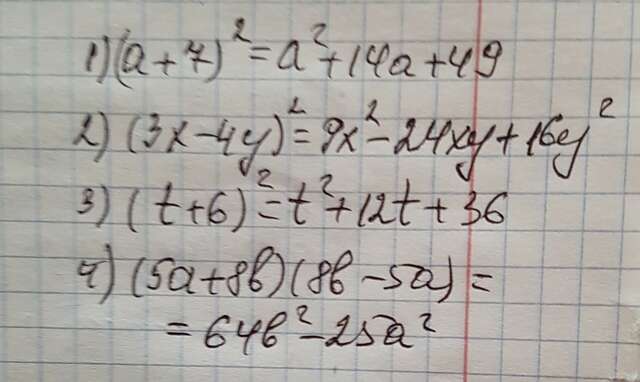 1) (a+7)² = a² + 14a + 49
2) (3x - 4y)² = 9x² - 24xy + 16y²
3) (t+6)² = t² + 12t + 36
4) (5a+8b)(8b-5a) =
= 64b² - 25a²